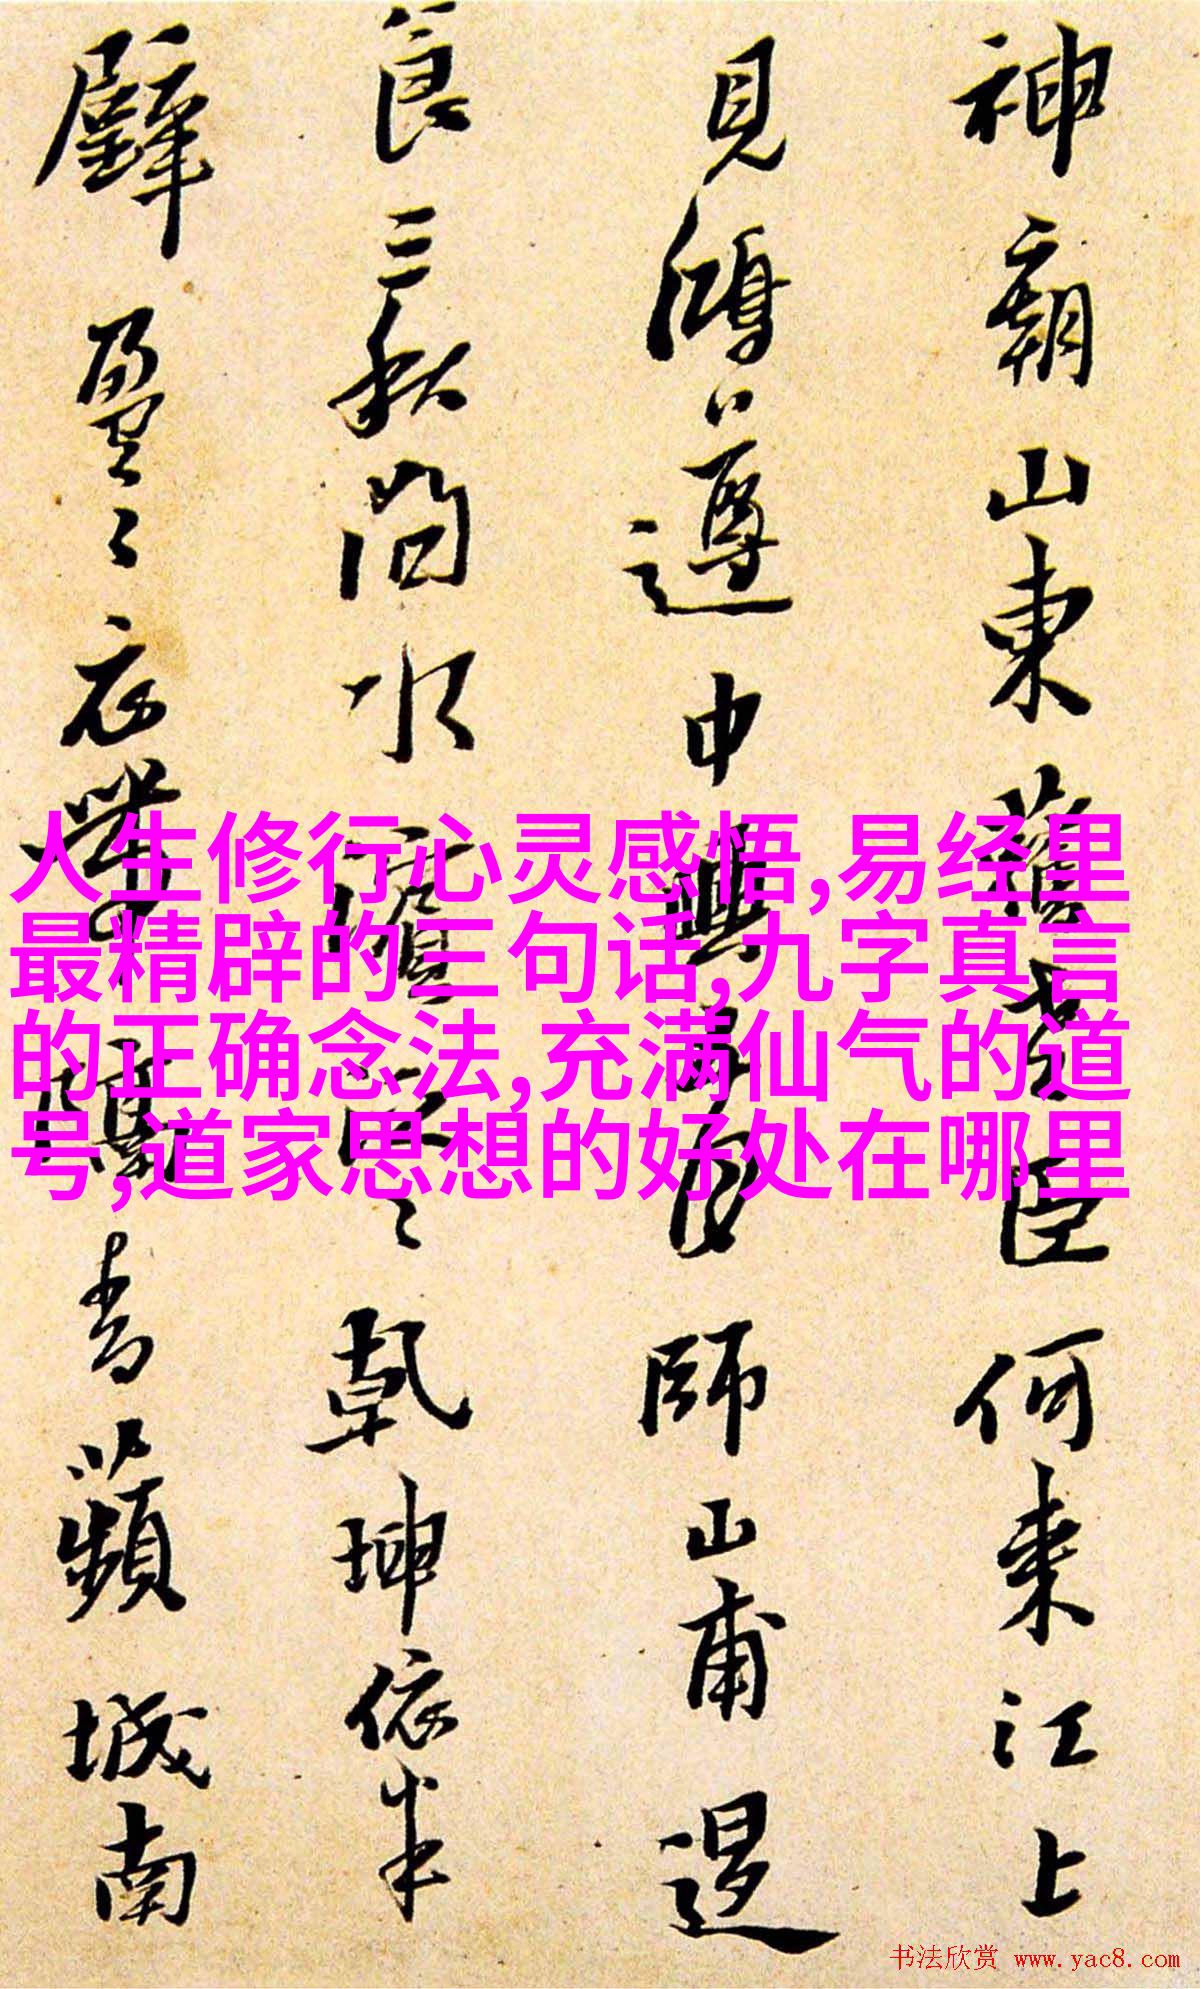 神廟山東舊老臣何來江上
見鴻遵中興師山甫退
食三秋問水濱乾坤依半
壁盈盈衣帶隔青蘋城南
人生修行心灵感悟,易经里
最精辟的三句话,九字真言
的正确念法,充满仙气的道
号,道家思想的好处在哪里
书法欣赏 www.yac8.com